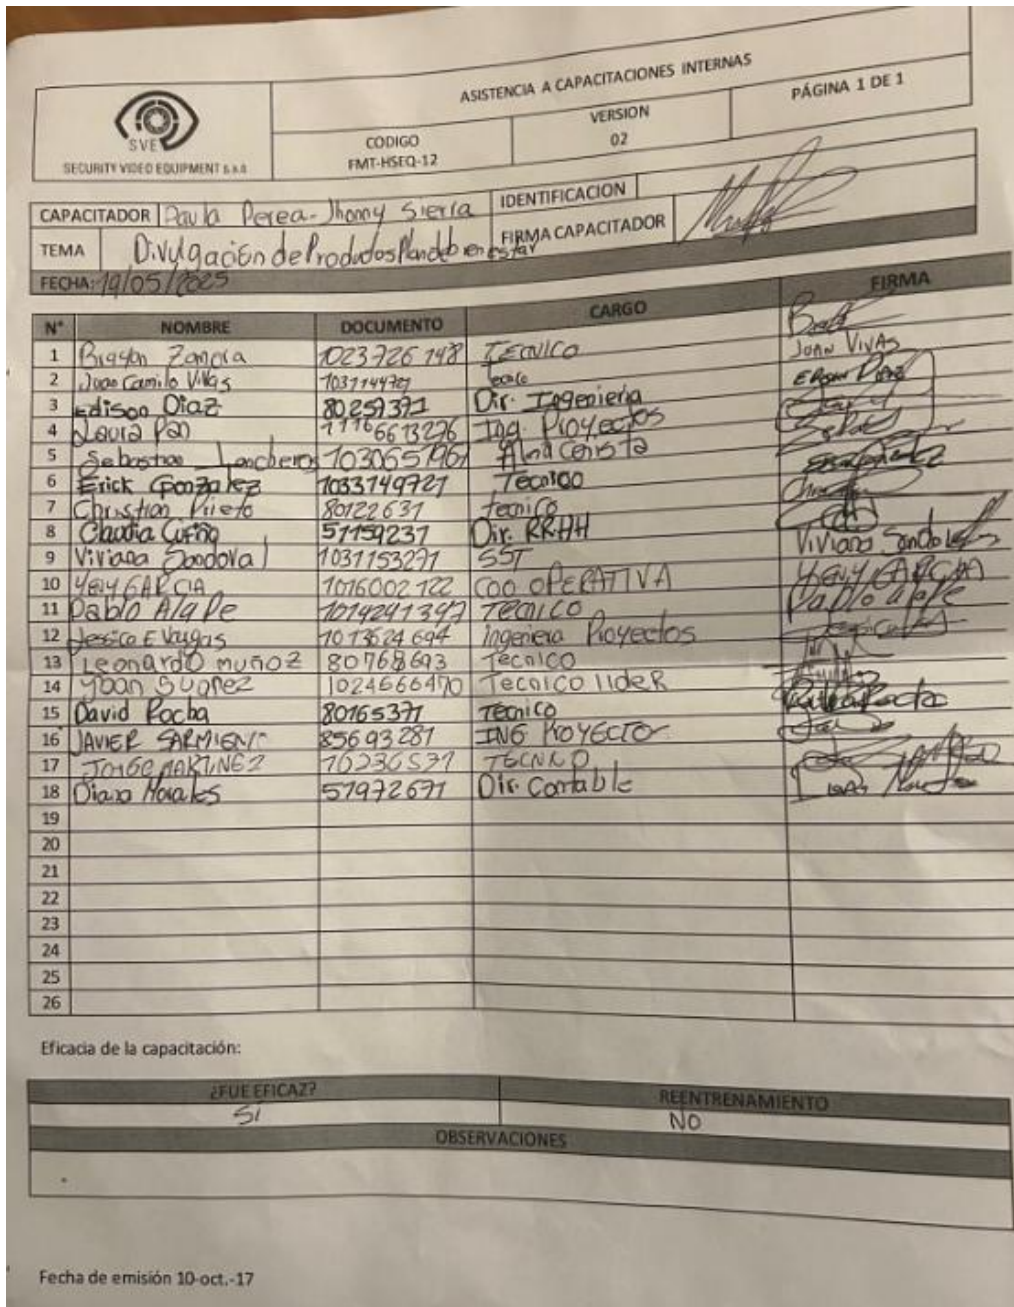 ASISTENCIA A CAPACITACIONES INTERNAS
SVE
SECURITY VIDEO EQUIPMENT S.A.S
CODIGO
FMT-HSEQ-12
VERSION
02
PÁGINA 1 DE 1
CAPACITADOR Paula Perea - Jhonny Sierra IDENTIFICACION
TEMA Divulgación de Productos Plan de bienestar FIRMA CAPACITADOR
FECHA: 19/05/2025
N° NOMBRE DOCUMENTO CARGO FIRMA
1 Brayan Zamora 1023726148 TECNICO
2 Juan Camilo Vivas 1031144721 Tecnico JUAN VIVAS
3 Edison Diaz 80257371 Dir. Ingenieria EDISON DIAZ
4 Laura Pan Ing. Proyectos
5 Sebastian Lancheros 1030651961 Almacenista
6 Erick Gonzalez 1033149721 Tecnico
7 Christian Prieto 80122631 tecnico
8 Claudia Cufiño 51159237 Dir. RRHH
9 Viviana Sandoval 1031153271 SST Viviana Sandoval
10 YENY GARCIA 1016002122 COO OPERATIVA YENY GARCIA
11 Pablo Alape 1014241397 TECNICO Pablo Alape
12 Jessica E Vargas 1013624694 Ingeniera Proyectos
13 Leonardo muñoz 80768693 Tecnico
14 Yoan Suarez 1024666470 Tecnico lideR
15 David Rocha 80165371 Tecnico
16 JAVIER SARMIENTO 85693281 ING PROYECTOS
17 JORGE MARTINEZ 10236571 TECNICO
18 Diana Morales 51972671 Dir. Contable
19
20
21
22
23
24
25
26
Eficacia de la capacitación:
¿FUE EFICAZ? REENTRENAMIENTO
SI NO
OBSERVACIONES
Fecha de emisión 10-oct.-17